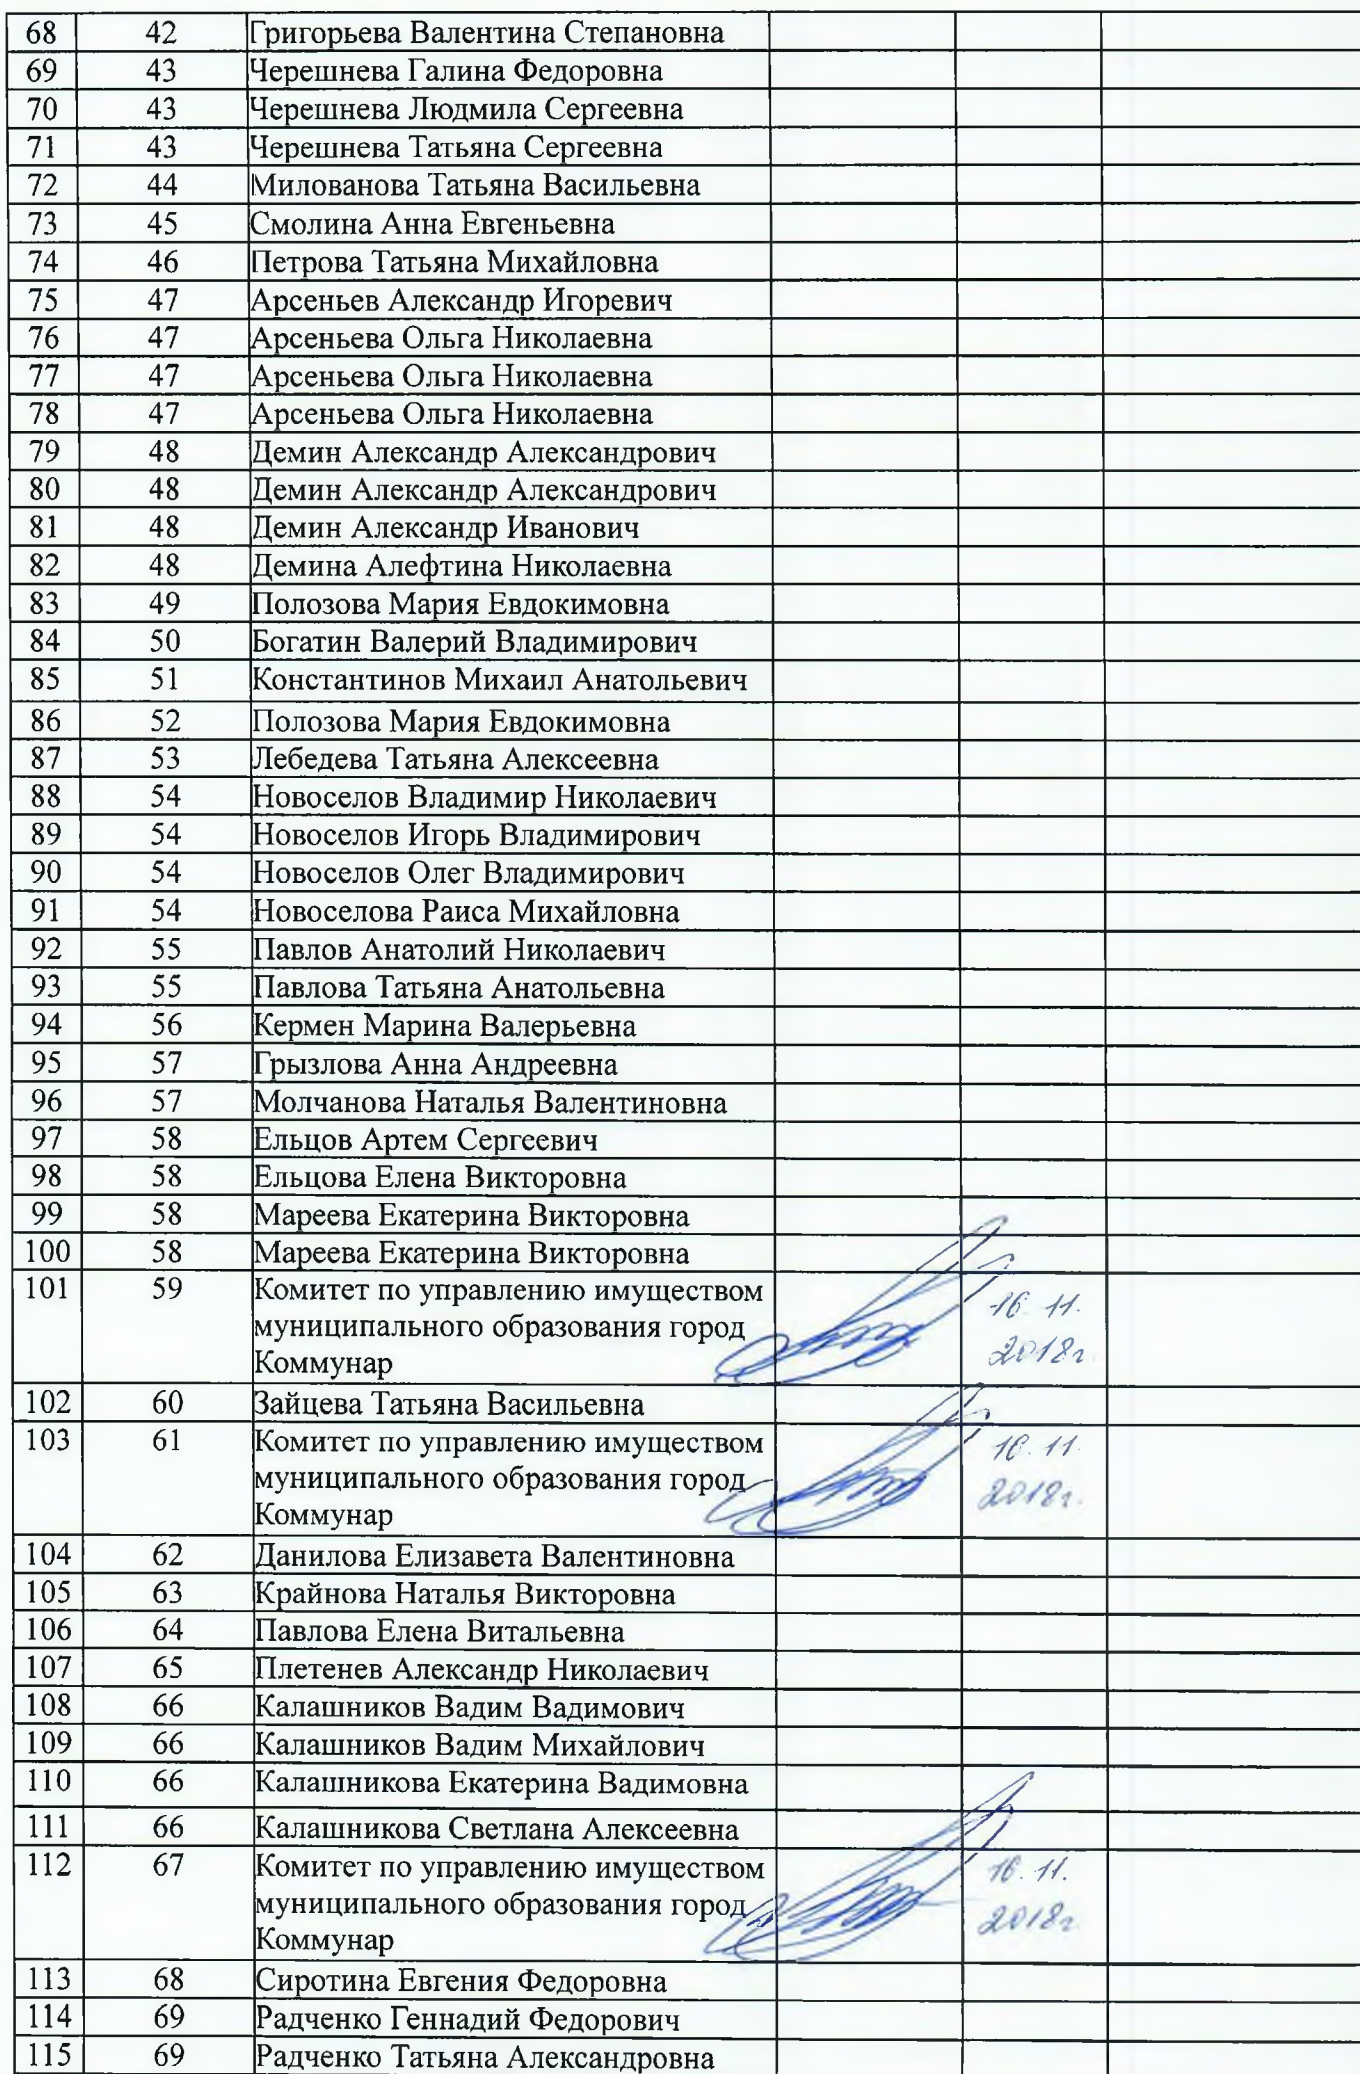 68 42 Григорьева Валентина Степановна
69 43 Черешнева Галина Федоровна
70 43 Черешнева Людмила Сергеевна
71 43 Черешнева Татьяна Сергеевна
72 44 Милованова Татьяна Васильевна
73 45 Смолина Анна Евгеньевна
74 46 Петрова Татьяна Михайловна
75 47 Арсеньев Александр Игоревич
76 47 Арсеньева Ольга Николаевна
77 47 Арсеньева Ольга Николаевна
78 47 Арсеньева Ольга Николаевна
79 48 Демин Александр Александрович
80 48 Демин Александр Александрович
81 48 Демин Александр Иванович
82 48 Демина Алефтина Николаевна
83 49 Полозова Мария Евдокимовна
84 50 Богатин Валерий Владимирович
85 51 Константинов Михаил Анатольевич
86 52 Полозова Мария Евдокимовна
87 53 Лебедева Татьяна Алексеевна
88 54 Новоселов Владимир Николаевич
89 54 Новоселов Игорь Владимирович
90 54 Новоселов Олег Владимирович
91 54 Новоселова Раиса Михайловна
92 55 Павлов Анатолий Николаевич
93 55 Павлова Татьяна Анатольевна
94 56 Кермен Марина Валерьевна
95 57 Грызлова Анна Андреевна
96 57 Молчанова Наталья Валентиновна
97 58 Ельцов Артем Сергеевич
98 58 Ельцова Елена Викторовна
99 58 Мареева Екатерина Викторовна
100 58 Мареева Екатерина Викторовна
101 59 Комитет по управлению имуществом
муниципального образования город
Коммунар
16.11.
2018г.
102 60 Зайцева Татьяна Васильевна
103 61 Комитет по управлению имуществом
муниципального образования город
Коммунар
16.11.
2018г.
104 62 Данилова Елизавета Валентиновна
105 63 Крайнова Наталья Викторовна
106 64 Павлова Елена Витальевна
107 65 Плетенев Александр Николаевич
108 66 Калашников Вадим Вадимович
109 66 Калашников Вадим Михайлович
110 66 Калашникова Екатерина Вадимовна
111 66 Калашникова Светлана Алексеевна
112 67 Комитет по управлению имуществом
муниципального образования город
Коммунар
16.11.
2018г
113 68 Сиротина Евгения Федоровна
114 69 Радченко Геннадий Федорович
115 69 Радченко Татьяна Александровна